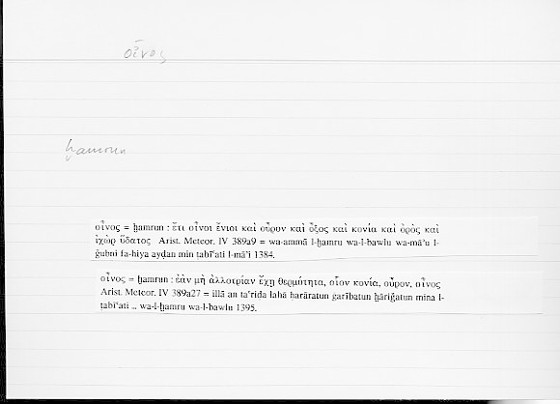 οἶνος
ḫamrun
οἶνος = ḫamrun : ἔτι οἶνοι ἔνιοι καὶ οὖρον καὶ ὄξος καὶ κονία καὶ ὀρὸς καὶ
ἰχὼρ ὕδατος Arist. Meteor. IV 389a9 = wa-ammā l-ḫamru wa-l-bawlu wa-mā'u l-
ǧubni fa-hiya ayḍan min ṭabī'ati l-mā'i 1384.
οἶνος = ḫamrun : ἐὰν μὴ ἀλλοτρίαν ἔχῃ θερμότητα, οἷον κονία, οὖρον, οἶνος
Arist. Meteor. IV 389a27 = illā an ta'riḍa lahā ḥarāratun ġarībatun ḫāriǧatun mina l-
ṭabī'ati .. wa-l-ḫamru wa-l-bawlu 1395.